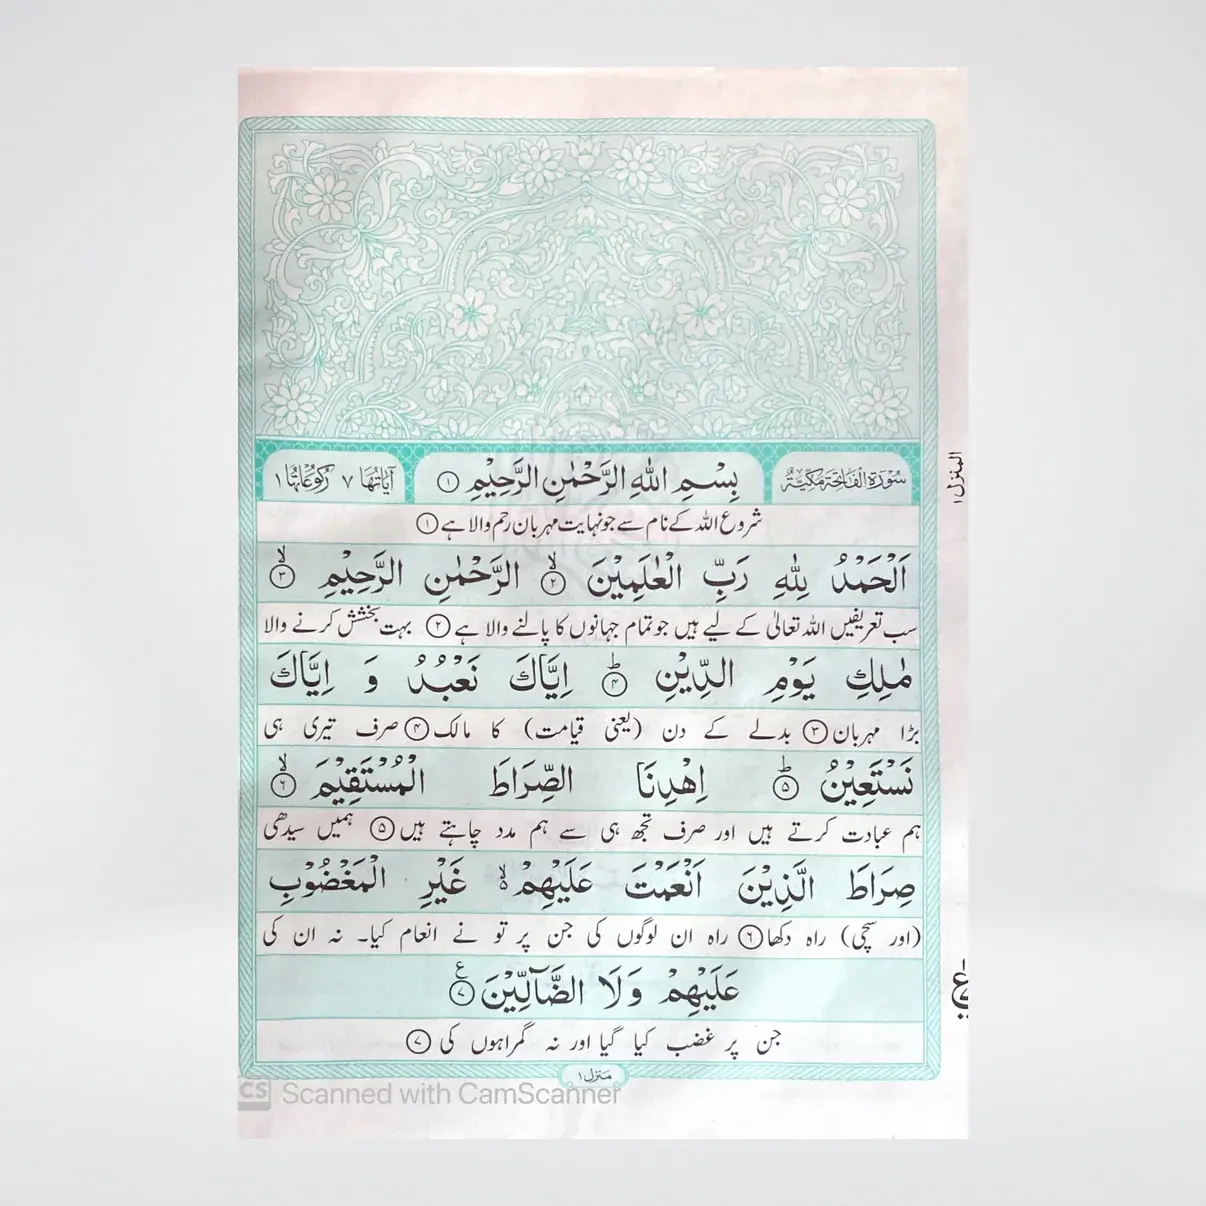 سُوْرَةُ الْفَاتِحَةِ مَكِّيَّةٌ
بِسْمِ اللّٰهِ الرَّحْمٰنِ الرَّحِيْمِ ۝۱
اٰيَاتُهَا ۷ رُكُوْعَاتُهَا ۱
المنزل ۱
شروع اللہ کے نام سے جو نہایت مہربان رحم والا ہے ۝۱
اَلْحَمْدُ لِلّٰهِ رَبِّ الْعٰلَمِيْنَ ۝۲ۙ الرَّحْمٰنِ الرَّحِيْمِ ۝۳ۙ
سب تعریفیں اللہ تعالیٰ کے لیے ہیں جو تمام جہانوں کا پالنے والا ہے ۝۲ بہت بخشش کرنے والا
مٰلِكِ يَوْمِ الدِّيْنِ ۝۴ؕ اِيَّاكَ نَعْبُدُ وَ اِيَّاكَ
بڑا مہربان ۝۳ بدلے کے دن (یعنی قیامت) کا مالک ۝۴ صرف تیری ہی
نَسْتَعِيْنُ ۝۵ؕ اِهْدِنَا الصِّرَاطَ الْمُسْتَقِيْمَ ۝۶ۙ
ہم عبادت کرتے ہیں اور صرف تجھ ہی سے ہم مدد چاہتے ہیں ۝۵ ہمیں سیدھی
صِرَاطَ الَّذِيْنَ اَنْعَمْتَ عَلَيْهِمْ ۙ۬ۦ غَيْرِ الْمَغْضُوْبِ
(اور سچی) راہ دکھا ۝۶ راہ ان لوگوں کی جن پر تو نے انعام کیا۔ نہ ان کی
عَلَيْهِمْ وَلَا الضَّآلِّيْنَ ۝۷ع
جن پر غضب کیا گیا اور نہ گمراہوں کی ۝۷
منزل ۱
CS Scanned with CamScanner